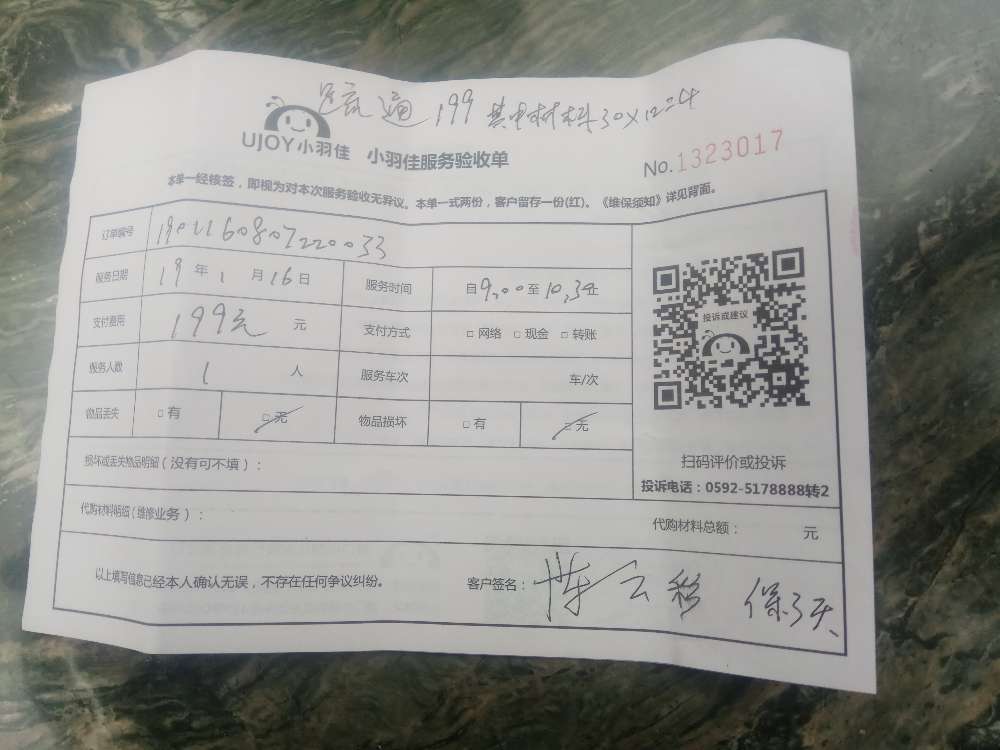 疏通 199 其中材料30×12=4
UJOY小羽佳 小羽佳服务验收单
No.1323017
本单一经核签，即视为对本次服务验收无异议。本单一式两份，客户留存一份(红)。《维保须知》详见背面。
订单编号
服务日期 19年1月16日 服务时间 自9:00至10:34止
支付费用 199元 元 支付方式 □网络 □现金 □转账
服务人数 1 人 服务车次 车/次
物品丢失 □有 □无 物品损坏 □有 □无
损坏或丢失物品明细（没有可不填）：
代购材料明细（维修业务）： 代购材料总额： 元
以上填写信息已经本人确认无误，不存在任何争议纠纷。 客户签名： 陈云彩 保3天
投诉或建议
扫码评价或投诉
投诉电话：0592-5178888转2